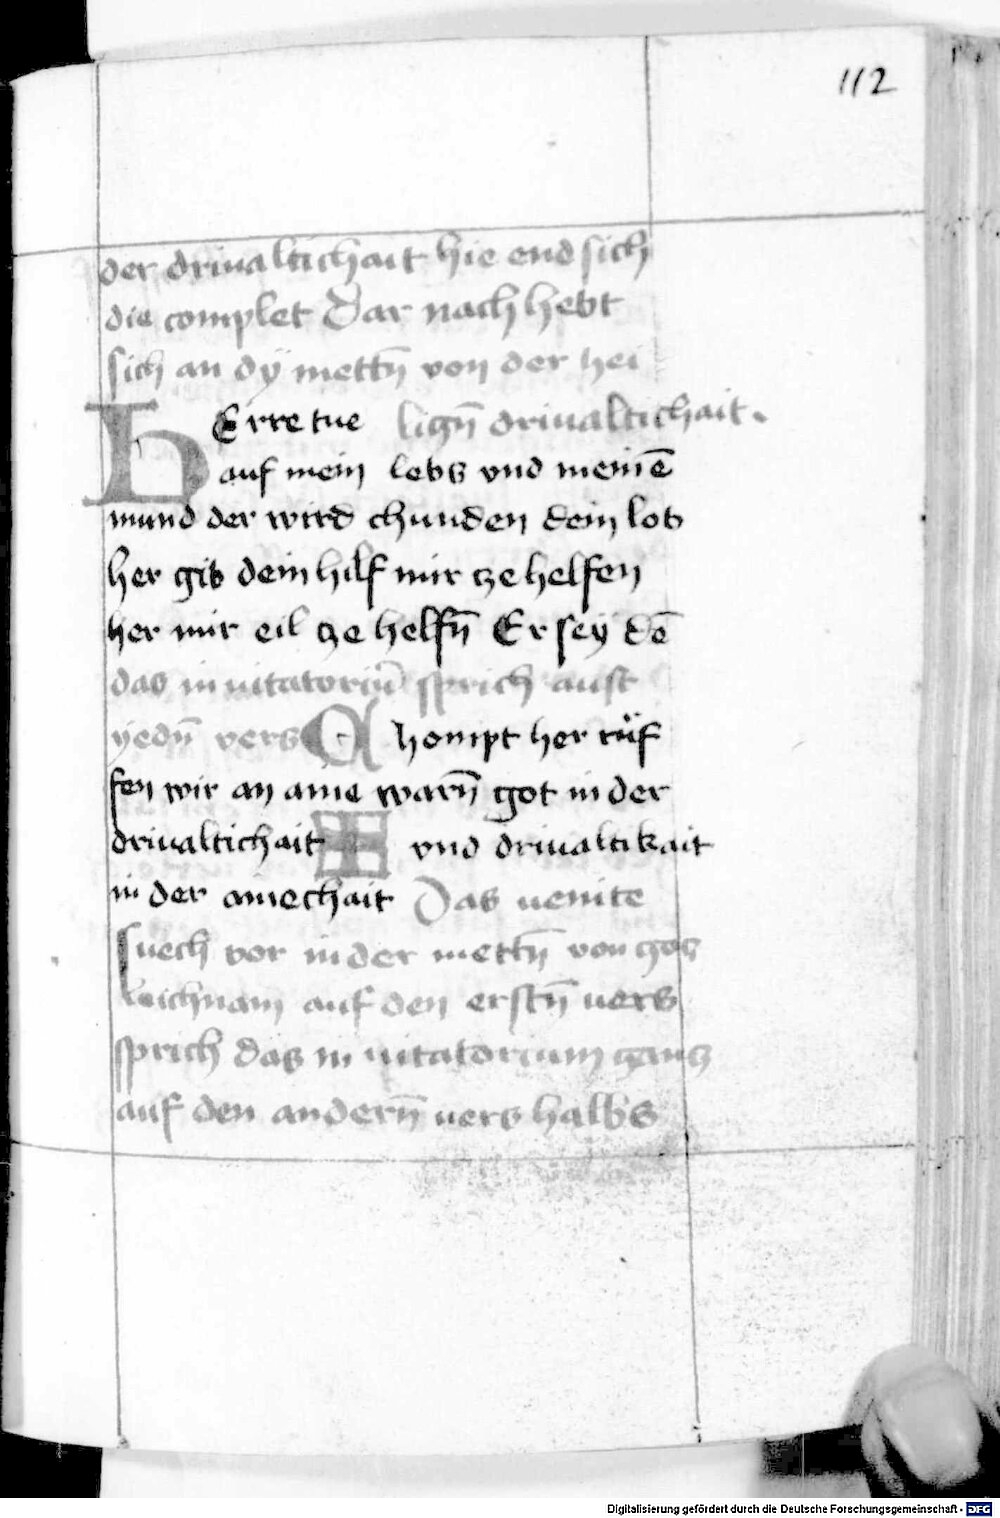 112
der driualtichait hie end sich
die complet Dar nach hebt
sich an dÿ mettn̄ von der hei
HErre tue lign̄ driualtichait.
auf mein lebs vnd meinē
mund der wird chunden dein lob
her gib dein hilf mir cze helfen
her mir eil cze helfn̄ Er seÿ dē
das inuitatoriū sprich auff
yedn̄ vers Chompt her rüf
fen wir an aine warn̄ got in der
driualtichait vnd driualtikait
in der ainechait Das uenite
suech vor in der mettn̄ von gos
leichnam auf den erstn̄ uers
sprich das in uitatorium gans
auf den andern̄ uers halbs
Digitalisierung gefördert durch die Deutsche Forschungsgemeinschaft - DFG